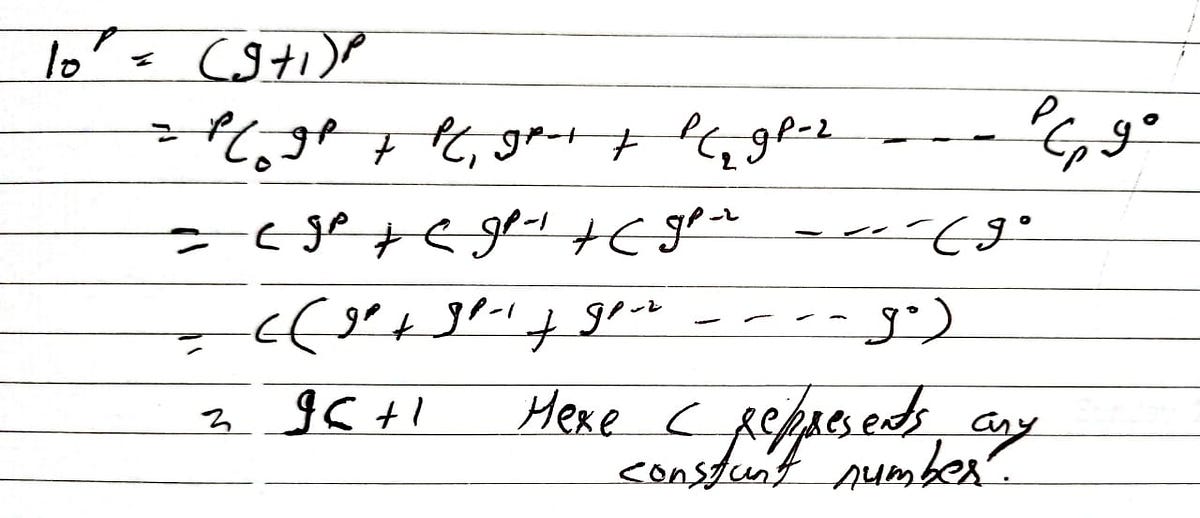 10^p = (9+1)^p
= ᵖC₀ 9^p + ᵖC₁ 9^(p-1) + ᵖC₂ 9^(p-2) - - - ᵖCₚ 9⁰
= C 9^p + C 9^(p-1) + C 9^(p-2) - - - - C 9⁰
= C(9^p + 9^(p-1) + 9^(p-2) - - - - 9⁰)
= 9C + 1 Here C represents any
constant number.